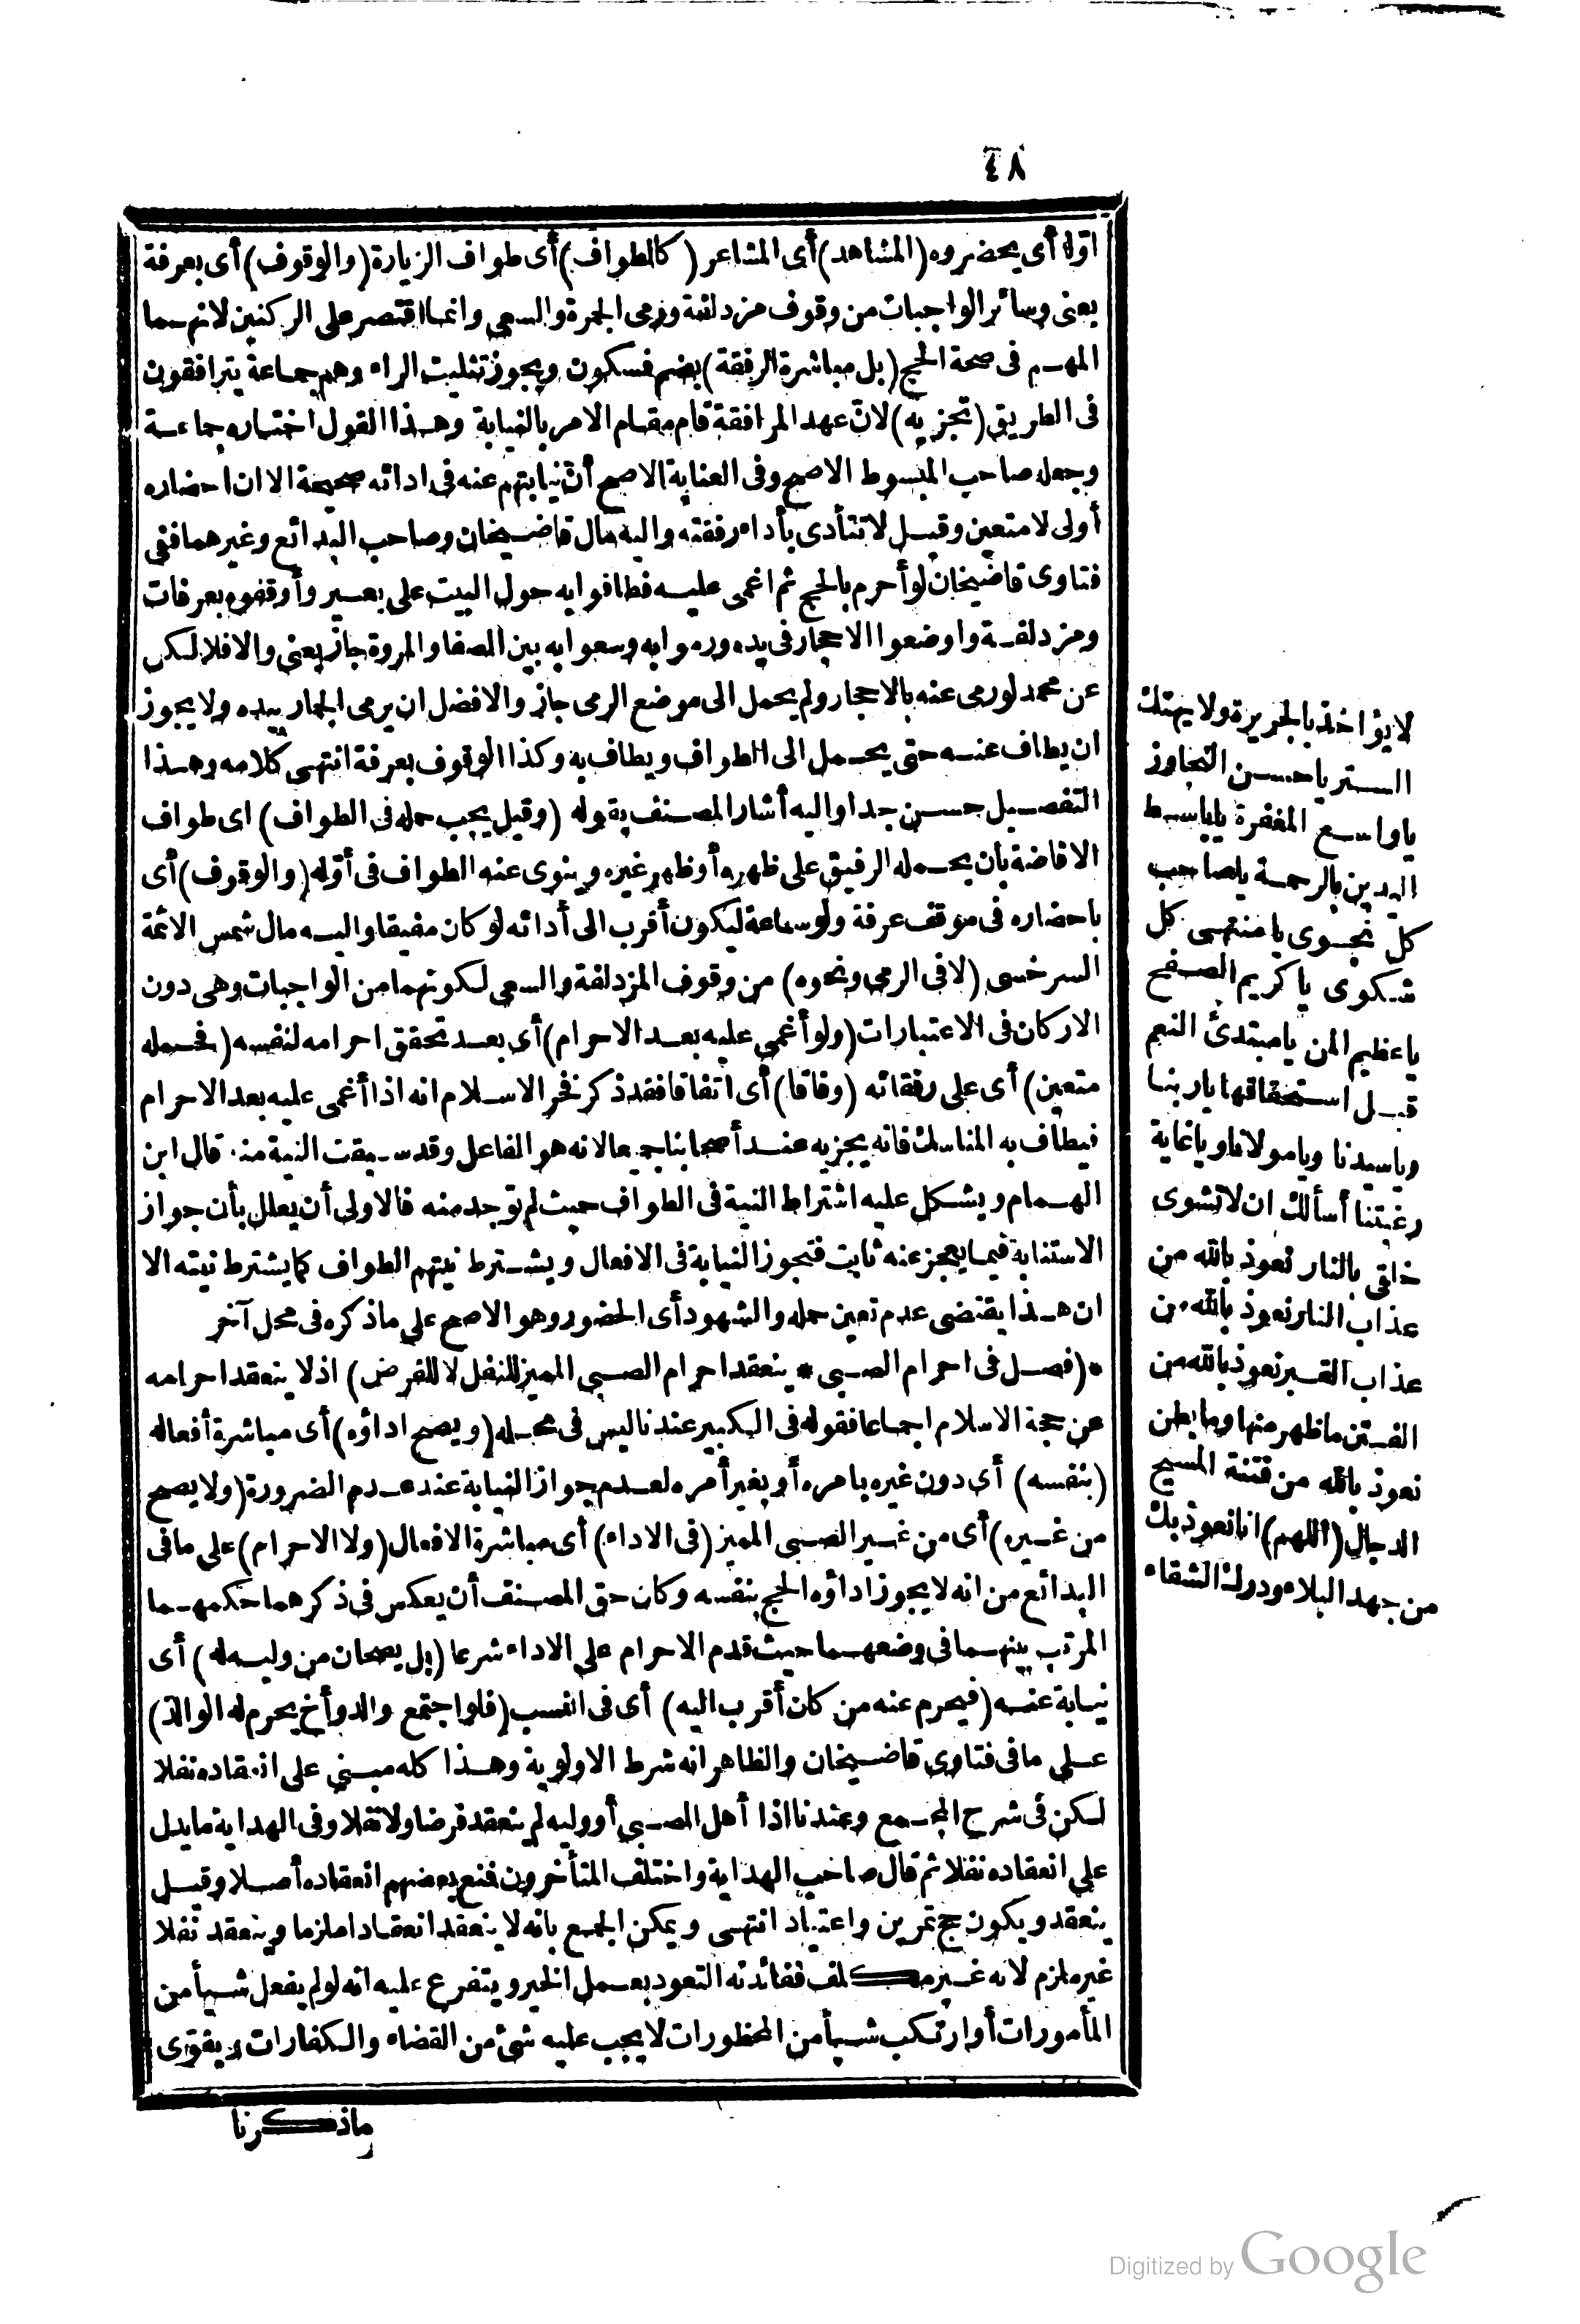 ٨٤
اوّله أى يحضروه (المشاهد) أى المشاعر (كالطواف) أى طواف الزيارة (والوقوف) أى بعرفة
يعنى وسائر الواجبات من وقوف مزدلفة ورمى الجمرة والسعى وانما اقتصر على الركنين لانهما
المهم فى صحة الحج (بل مباشرة الرفقة) بضم فسكون ويجوز تثليث الراء وهم جماعة يترافقون
فى الطريق (تجزيه) لان عهد المرافقة قام مقام الامر بالنيابة وهذا القول اختاره جماعة
وجعله صاحب المبسوط الاصح وفى العناية الاصح أن نيابتهم عنه فى ادائه صحيحة الا ان احضاره
أولى لا متعين وقيل لا تتأدى بأداء رفقته واليه مال قاضيخان وصاحب البدائع وغيرهما ففى
فتاوى قاضيخان لو أحرم بالحج ثم اغمى عليه فطافوا به حول البيت على بعير وأوقفوه بعرفات
ومزدلفة واوضعوا الاحجار فى يده ورموا به وسعوا به بين الصفا والمروة جاز يعنى والا فلا لكن
عن محمد لو رمى عنه بالاحجار ولم يحمل الى موضع الرمى جاز والافضل ان يرمى الجمار بيده ولا يجوز
ان يطاف عنه حتى يحمل الى الطواف ويطاف به وكذا الوقوف بعرفة انتهى كلامه وهذا
التفصيل حسن جدا واليه أشار المصنف بقوله (وقيل يجب حمله فى الطواف) اى طواف
الافاضة بان يحمله الرفيق على ظهره أو ظهر غيره وينوى عنه الطواف فى أوّله (والوقوف) أى
باحضاره فى موقف عرفة ولو ساعة ليكون أقرب الى أدائه لو كان مفيقا واليه مال شمس الائمة
السرخسى (لا فى الرمى ونحوه) من وقوف المزدلفة والسعى لكونهما من الواجبات وهى دون
الاركان فى الاعتبارات (ولو أغمى عليه بعد الاحرام) أى بعد تحقق احرامه لنفسه (فحمله
متعين) أى على رفقائه (وفاقا) أى اتفاقا فقد ذكر فخر الاسلام انه اذا أغمى عليه بعد الاحرام
فيطاف به المناسك فانه يجزيه عند أصحابنا جميعا لانه هو الفاعل وقد سبقت النية منه قال ابن
الهمام ويشكل عليه اشتراط النية فى الطواف حيث لم توجد منه فالاولى أن يعلل بأن جواز
الاستنابة فيما يعجز عنه ثابت فتجوز النيابة فى الافعال ويشترط نيتهم الطواف كما يشترط نيته الا
ان هذا يقتضى عدم تعين حمله والشهود أى الحضور وهو الاصح على ما ذكره فى محل آخر
* (فصل فى احرام الصبى * ينعقد احرام الصبى المميز للنفل لا للفرض) اذ لا ينعقد احرامه
عن حجة الاسلام اجماعا فقوله فى الكبير عندنا ليس فى محله (ويصح اداؤه) أى مباشرة أفعاله
(بنفسه) أى دون غيره بامره أو بغير أمره لعدم جواز النيابة عند عدم الضرورة (ولا يصح
من غيره) أى من غير الصبى المميز (فى الاداء) أى مباشرة الافعال (ولا الاحرام) على ما فى
البدائع من انه لا يجوز اداؤه الحج بنفسه وكان حق المصنف أن يعكس فى ذكرهما حكمهما
المرتب بينهما فى وضعهما حيث قدم الاحرام على الاداء شرعا (بل يصحان من وليه له) أى
نيابة عنه (فيحرم عنه من كان أقرب اليه) أى فى النسب (فلو اجتمع والد وأخ يحرم له الوالد)
على ما فى فتاوى قاضيخان والظاهر انه شرط الاولوية وهذا كله مبنى على انعقاده نفلا
لكن فى شرح المجمع وعندنا اذا أهل الصبى أو وليه لم ينعقد فرضا ولا نفلا وفى الهداية ما يدل
على انعقاده نفلا ثم قال صاحب الهداية واختلف المتأخرون فمنع بعضهم انعقاده أصلا وقيل
ينعقد ويكون حج تمرين واعتياد انتهى ويمكن الجمع بانه لا ينعقد انعقادا ملزما وينعقد نفلا
غير ملزم لانه غير مكلف ففائدته التعود بعمل الخير ويتفرع عليه انه لو لم يفعل شيأ من
المأمورات أو ارتكب شيأ من المحظورات لا يجب عليه شئ من القضاء والكفارات ويقوى
ماذكرنا
لا يؤاخذ بالجريرة ولا يهتك
الستر يا حسن التجاوز
يا واسع المغفرة يا باسط
اليدين بالرحمة يا صاحب
كل نجوى يا منتهى كل
شكوى يا كريم الصفح
يا عظيم المن يا مبتدئ النعم
قبل استحقاقها يا ربنا
ويا سيدنا ويا مولانا ويا غاية
رغبتنا أسألك ان لا تشوى
خلقى بالنار نعوذ بالله من
عذاب النار نعوذ بالله من
عذاب القبر نعوذ بالله من
الفتن ما ظهر منها وما بطن
نعوذ بالله من فتنة المسيح
الدجال (اللهم) انا نعوذ بك
من جهد البلاء ودرك الشقاء
Digitized by Google